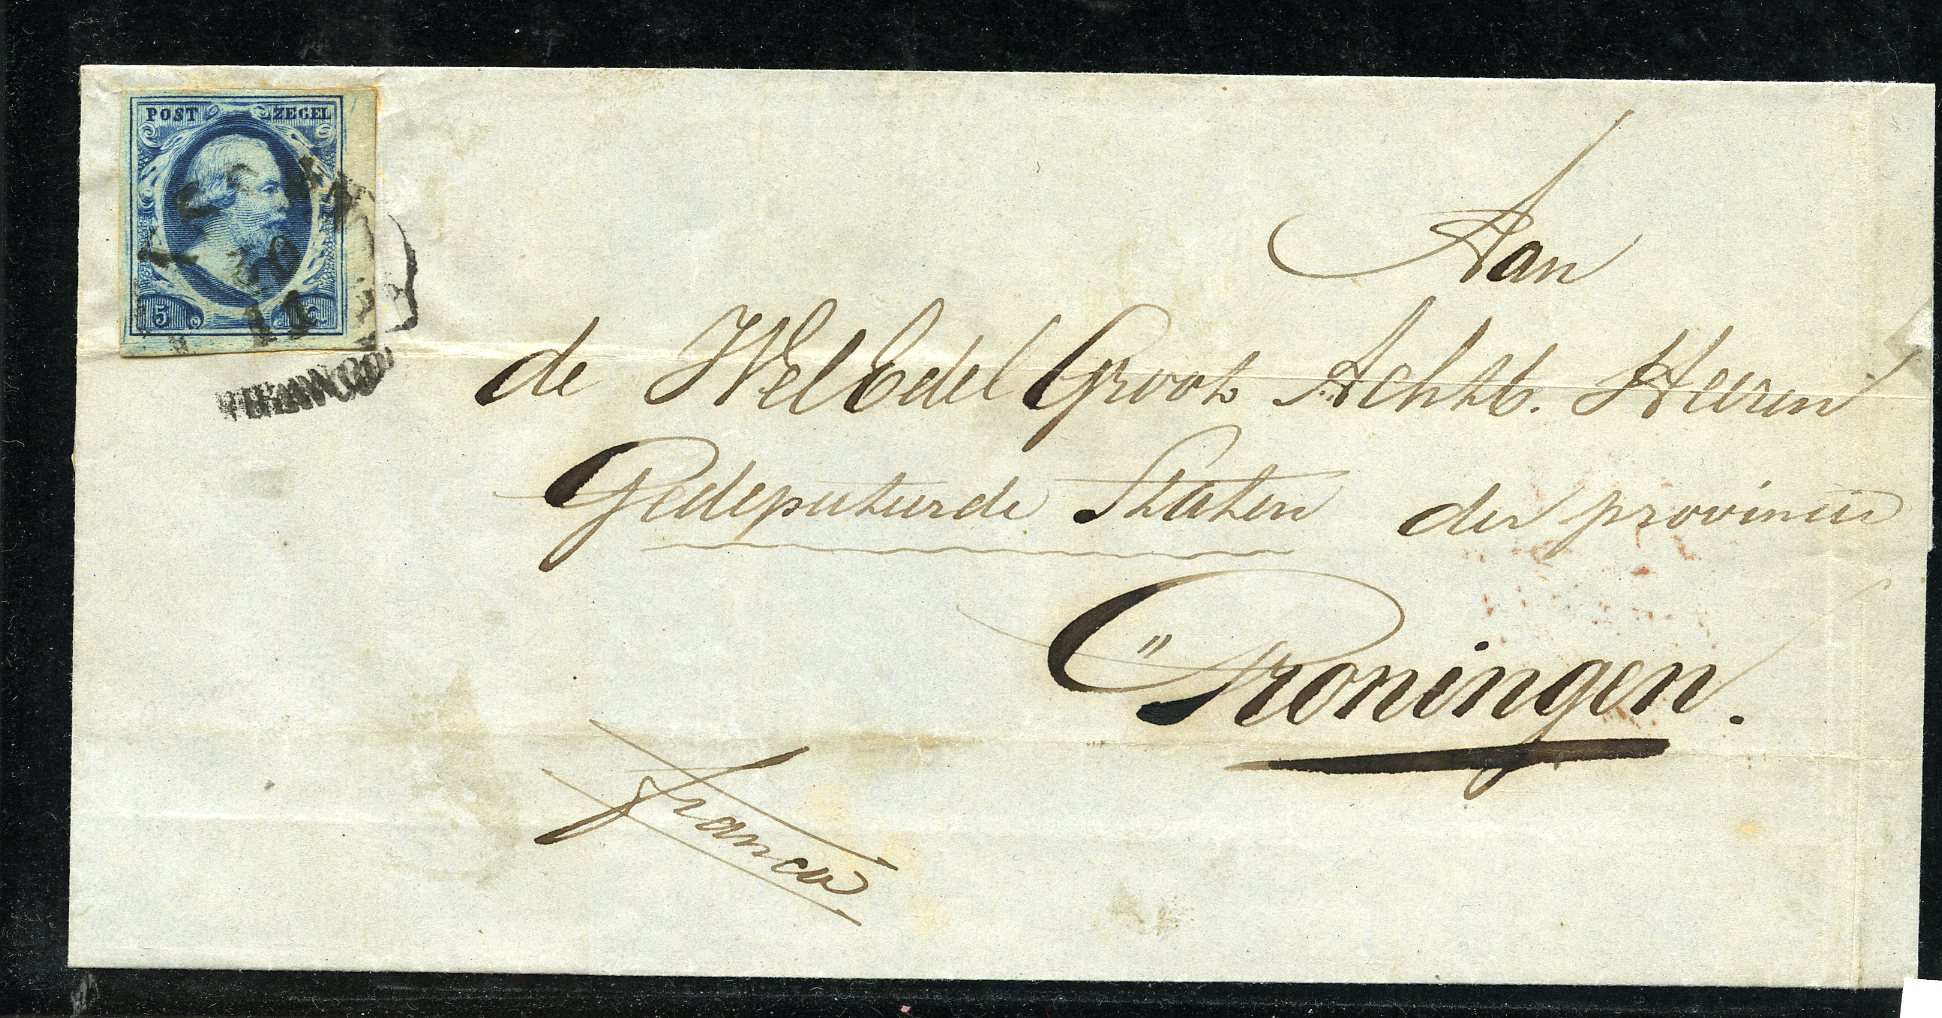 POST ZEGEL
5 C
30
11
FRANCO
Aan
de WelEdel Groot Achtb. Heeren
Gedeputeerde Staten der provincie
" Groningen.
franco